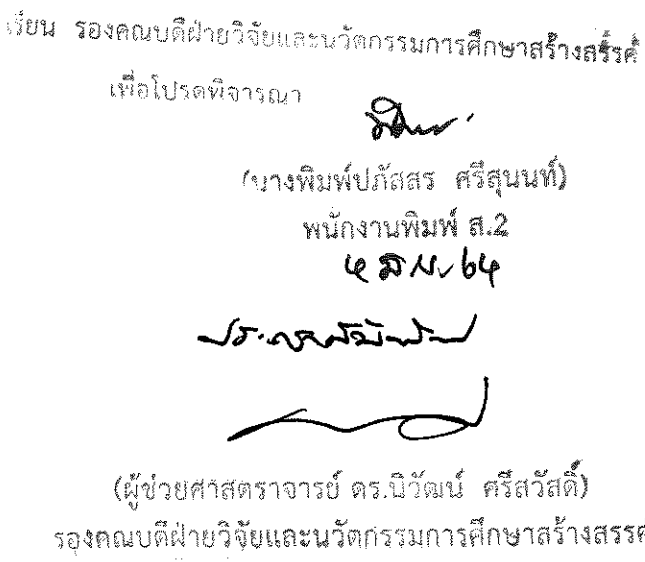 เรียน รองคณบดีฝ่ายวิจัยและนวัตกรรมการศึกษาสร้างสรรค์
เพื่อโปรดพิจารณา
(นางพิมพ์ปภัสสร ศรีสุนนท์)
พนักงานพิมพ์ ส.2
(ผู้ช่วยศาสตราจารย์ ดร.นิวัฒน์ ศรีสวัสดิ์)
รองคณบดีฝ่ายวิจัยและนวัตกรรมการศึกษาสร้างสรรค